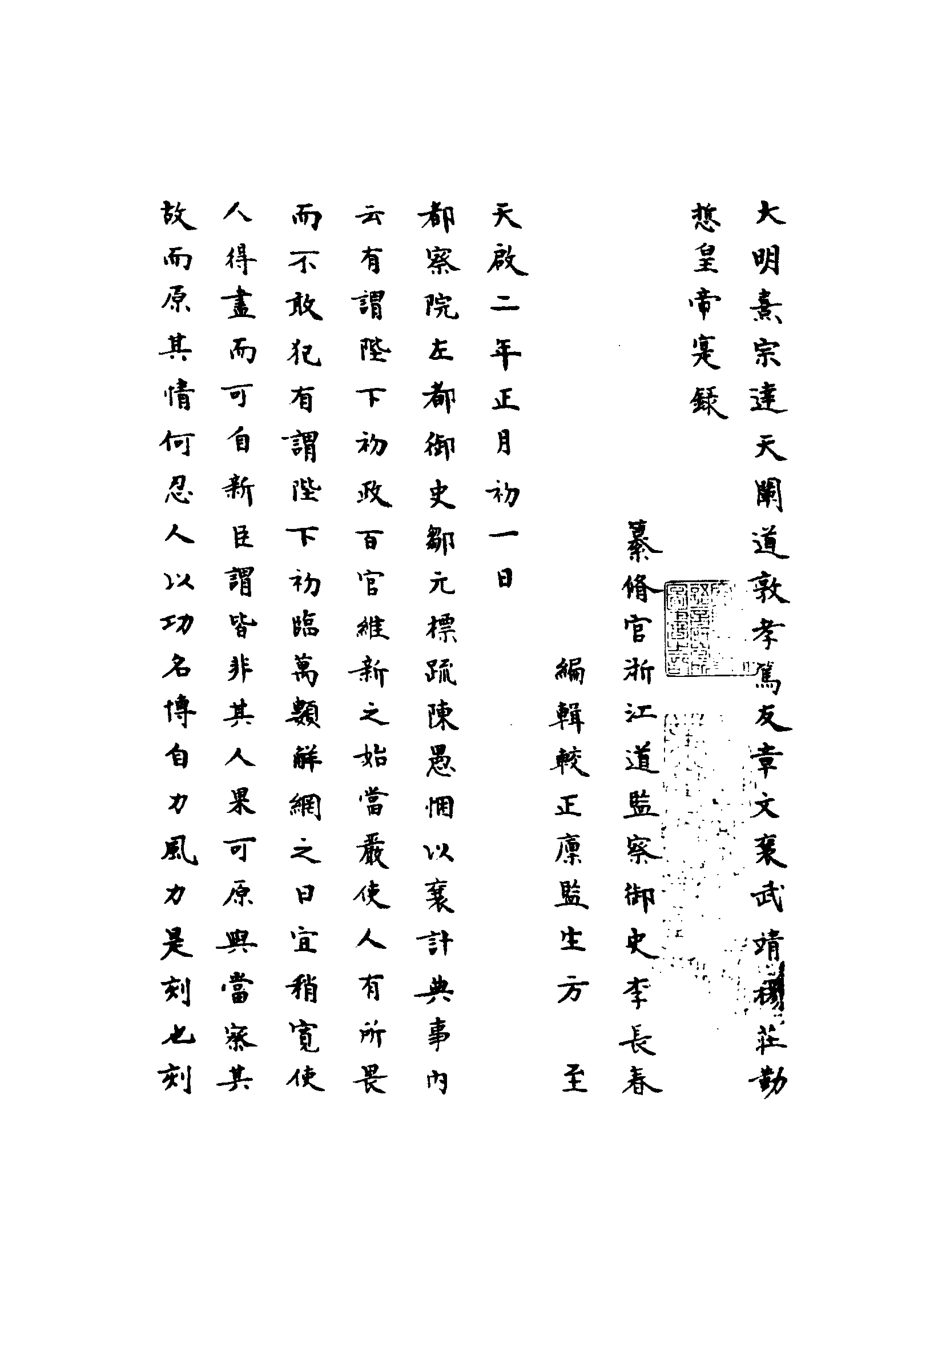 大明熹宗達天闡道敦孝篤友章文襄武靖穆莊勤
悊皇帝寔録
纂脩官浙江道監察御史李長春
編輯較正廩監生方　至
天啟二年正月初一日
都察院左都御史鄒元標疏陳愚悃以襄計典事內
云有謂陛下初政百官維新之始當嚴使人有所畏
而不敢犯有謂陛下初臨萬類解網之日宜稍寬使
人得盡而可自新臣謂皆非其人果可原與當察其
故而原其情何忍人以功名博自力風力是刻也刻